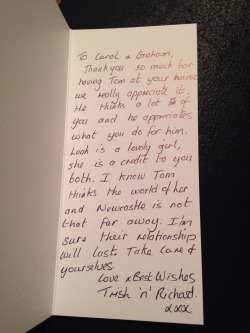 To Carol & Graham,
Thankyou so much for
having Tom at your house
we really appreciate it.
He thinks a lot of
you and he appreciates
what you do for him.
Leah is a lovely girl,
she is a credit to you
both. I know Tom
thinks the world of her
and Newcastle is not
that far away. I'm
sure their relationship
will last. Take care of
yourselves.
Love & Best Wishes
Trish 'n' Richard.
xxx